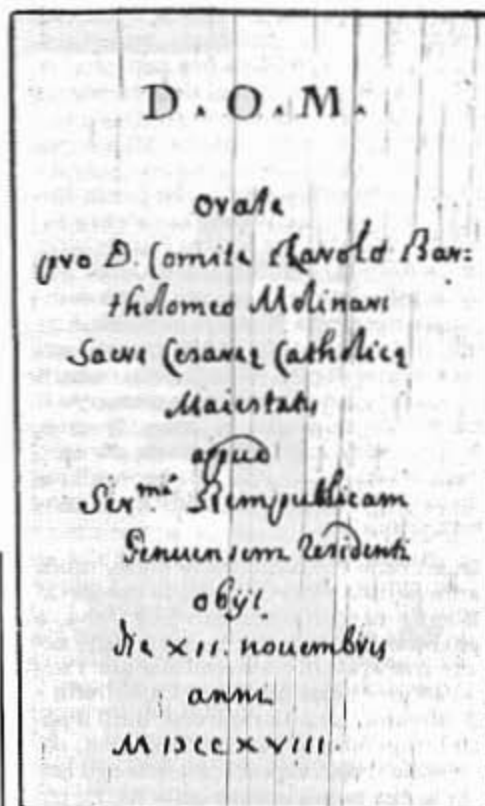 D. O. M.
orate
pro D. Comite Carolo Bar=
tholomeo Molinari
Sacre Cesareę Catholicę
Maiestatis
apud
Ser.mã Rempublicam
Genuensem Residenti
obijt
die XII. nouembris
anni
MDCCXVIII